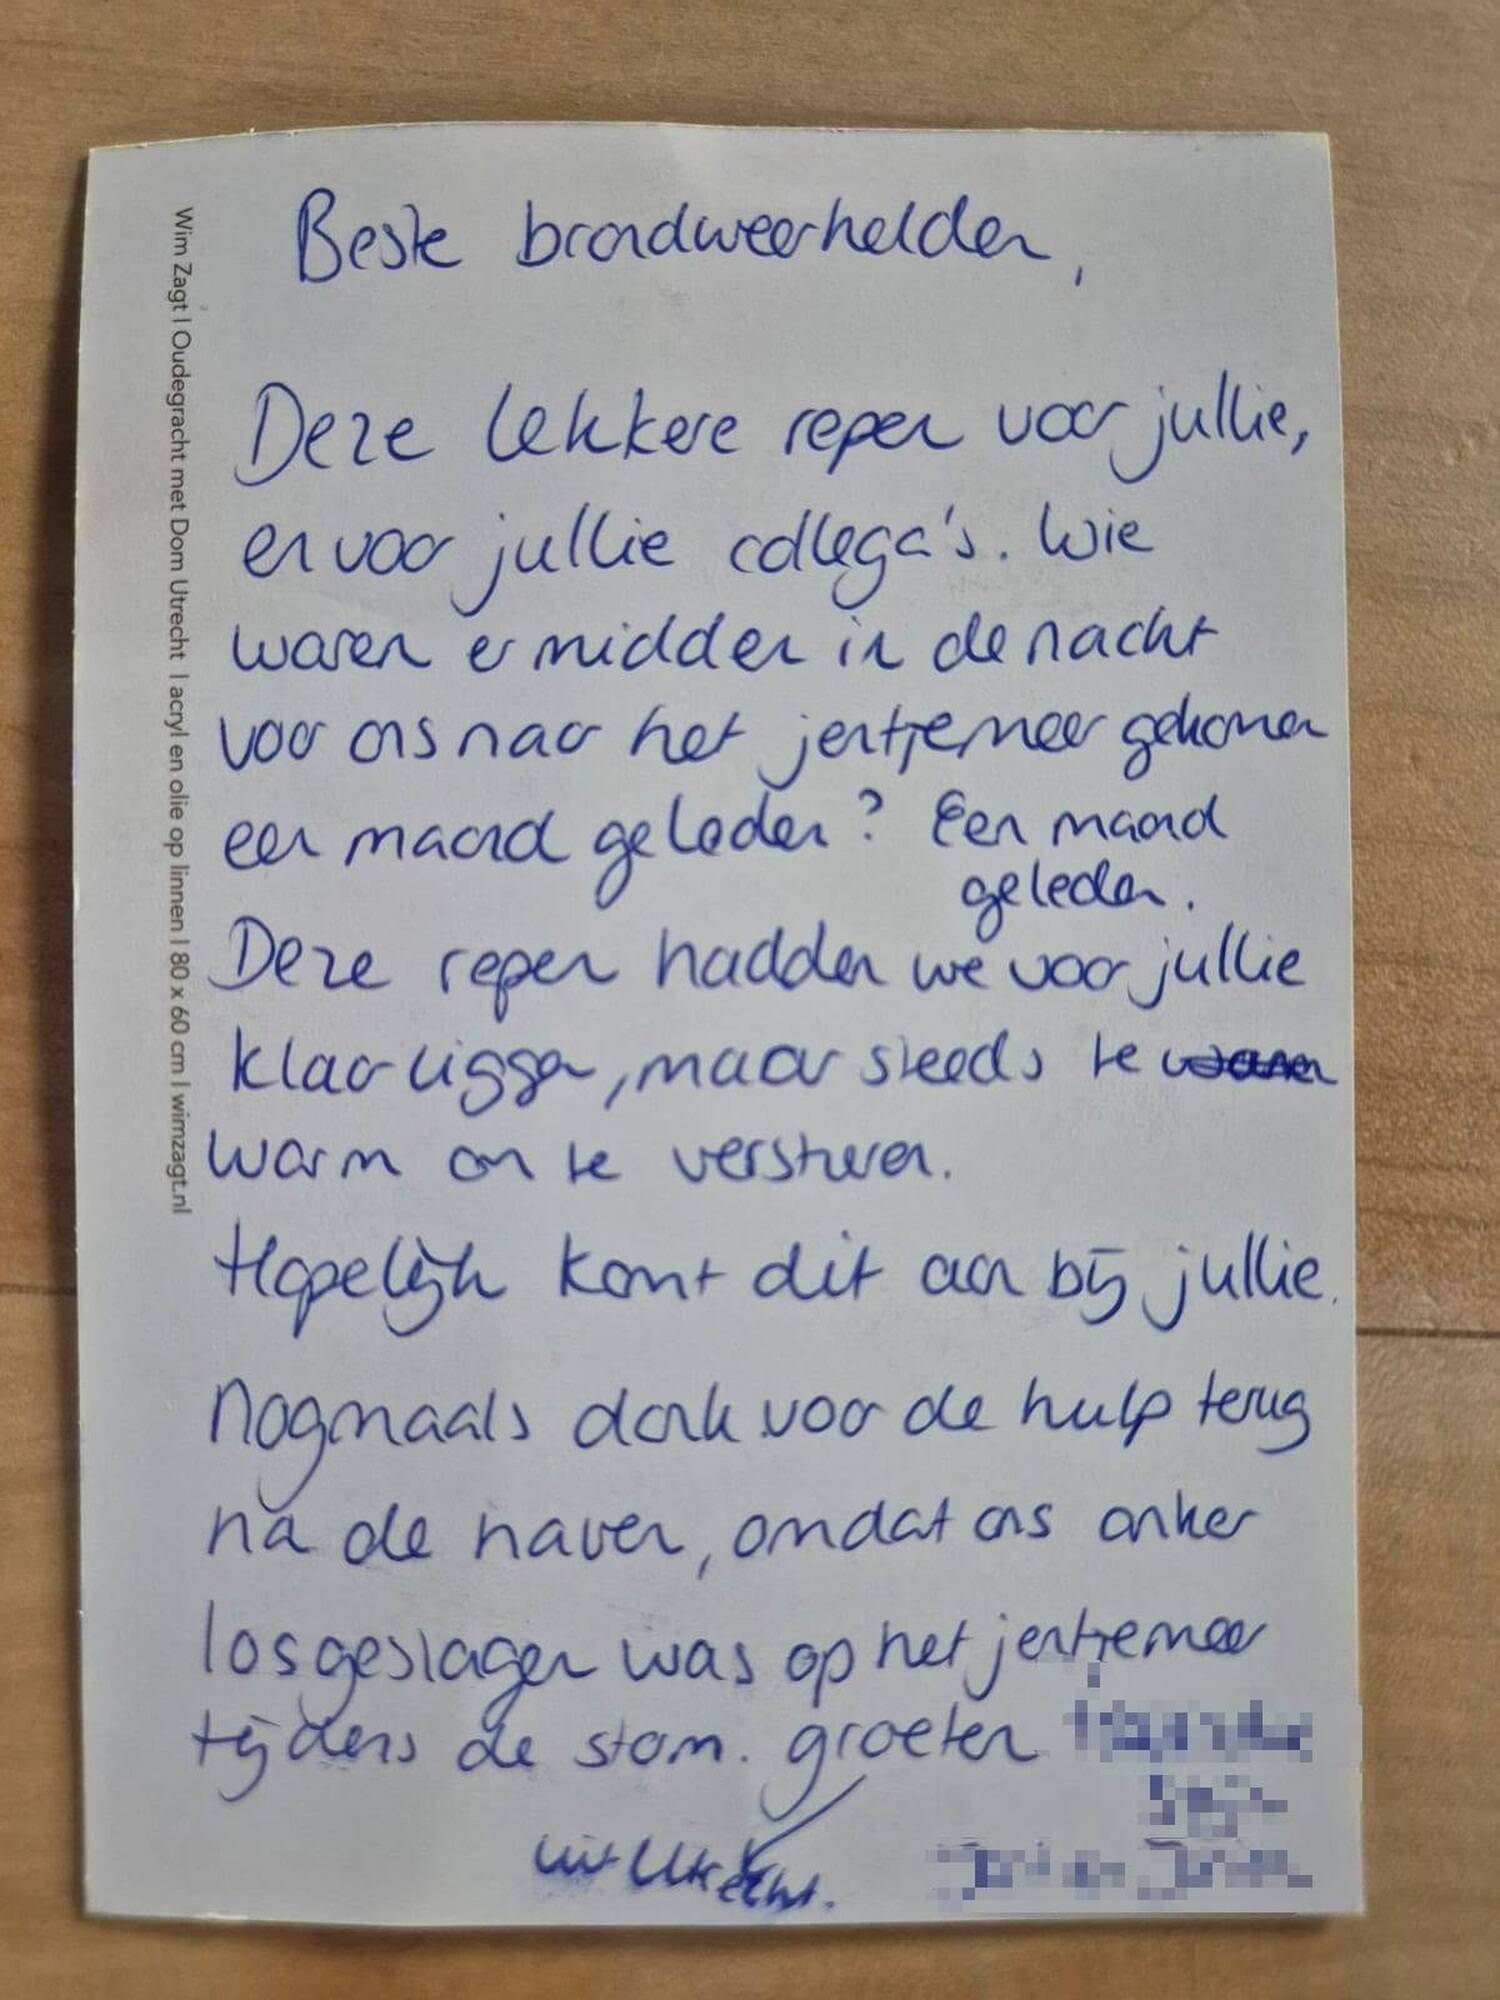 Beste brandweerhelden,
Deze lekkere repen voor jullie,
en voor jullie collega's. Wie
waren er midden in de nacht
voor ons naar het jentjemeer gekomen
een maand geleden? Een maand
geleden.
Deze repen hadden we voor jullie
klaar liggen, maar steeds te
warm om te versturen.
Hopelijk komt dit aan bij jullie.
Nogmaals dank voor de hulp terug
na de haven, omdat ons anker
losgeslagen was op het jentjemeer
tijdens de storm. groeten
uit Utrecht.
Wim Zagt | Oudegracht met Dom Utrecht | acryl en olie op linnen | 80 x 60 cm | wimzagt.nl